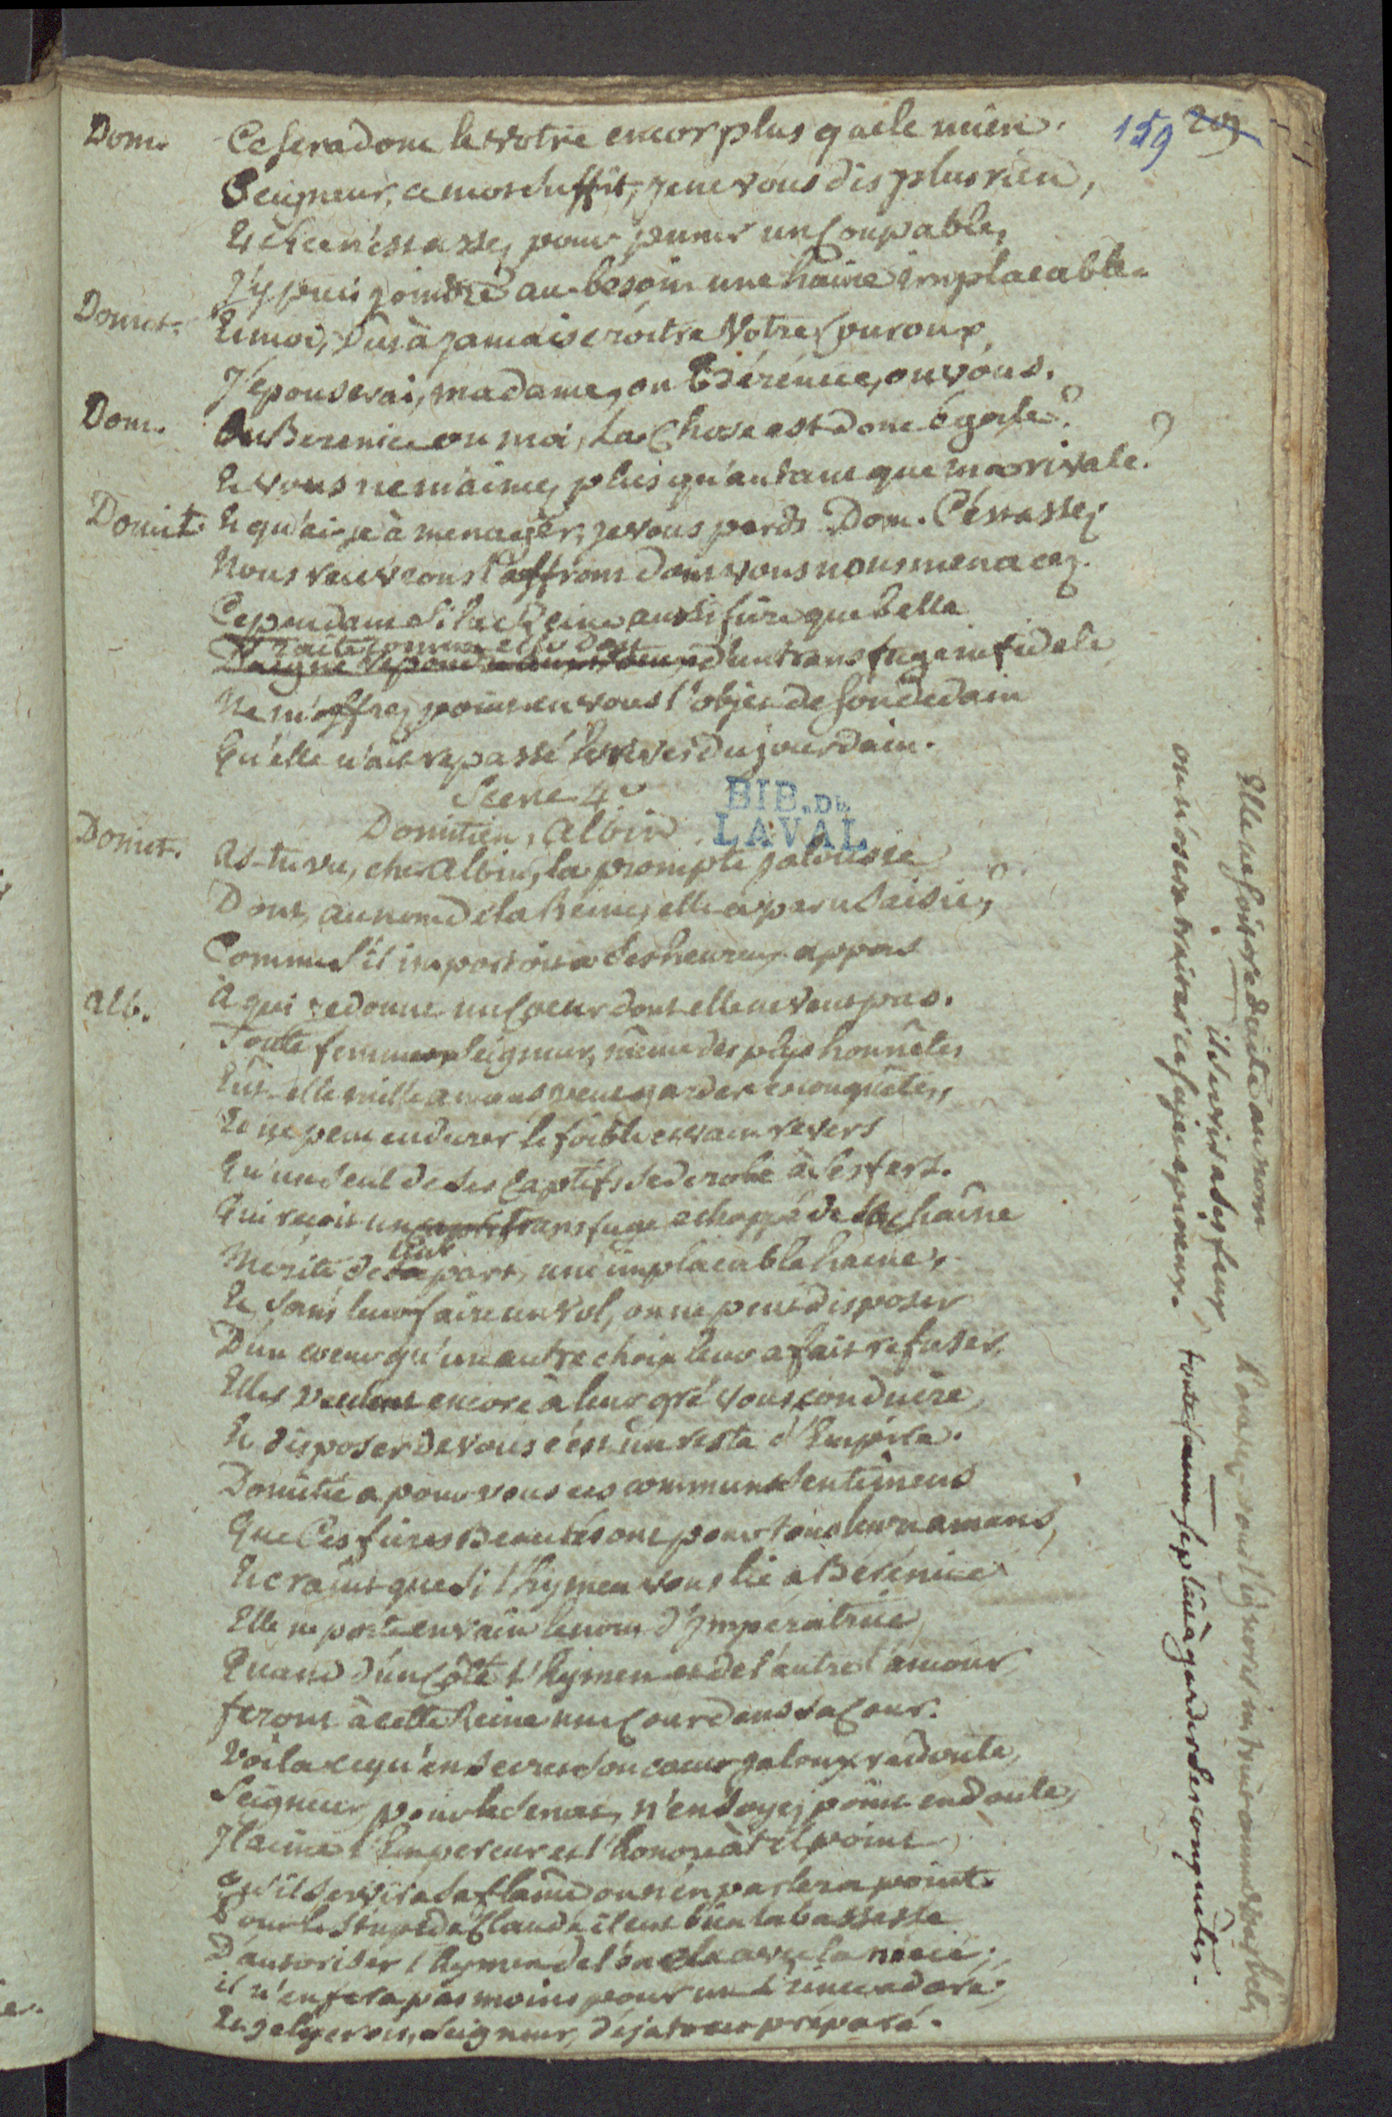 159 209
Dom. Ce sera donc le votre encor plus que le mien.
Seigneur, ce mot suffit, je ne vous dis plus rien,
Et si ce n'est assez pour punir un Coupable,
J'y puis joindre au besoin une haine implacable.
Domit. Et moi, Dût à jamais croître Votre Couroux,
J'épouserai, madame, ou Bérénice, ou vous.
Dom. Ou Berenice ou moi, La Chose est donc égale?
Et vous ne m'aimez plus qu'autant que ma rivale?
Domit. Et qu'ai-je à menager, je vous perds Dom. C'est assez.
Nous verrons l'affront dont vous nous menacez.
Cependant si la Reine aussi fiere que belle
Traite comme elle doit
Daigne repondre d'un transfuge infidele
Ne m'offrez point en vous l'objet de son dedain
Qu'elle n'ait repassé les rives du jourdain.
Scene 4e
Domitien, Albin
BIB. DE
LAVAL
Domit. As-tu vu, cher Albin, la prompte jalousie
Dont, au nom de la Reine, elle a paru saisie,
Comme s'il importoit à ses heureux appas
A qui je donne un Coeur dont elle ne veut pas.
Alb. Toute femme, Seigneur, même des plus honnêtes
Eût-elle mille amans veut garder ses conquêtes,
Et ne peut endurer le foible et vain revers
Qu'un seul de ses Captifs se derobe à ses fers.
Qui reçoit un transfuge echappé de sa chaîne
Merite de leur part, une implacable haine,
Et sans leur faire un vol, on ne peut disposer
D'un coeur qu'un autre choix leur a fait refuser.
Elles veulent encore à leur gré vous conduire,
Et disposer de vous c'est un reste d'Empire.
Domitie a pour vous ces communs sentimens
Que Ces fieres Beautés ont pour tous leurs amans,
Et craint que si l'hymen vous lie à Bérénice
Elle ne porte en vain le nom d'Impératrice
Quand d'un Côté l'hymen et de l'autre l'amour
feront à cette Reine une Cour dans sa Cour.
Voila ce qu'en secret son coeur jaloux redoute,
Seigneur, pour le senat, n'en soyez point en doute,
Il aime l'Empereur et l'honore à tel point
qu'il servira sa flame ou n'en parlera point.
Pour le stupide Claude il eut bien la bassesse
D'autoriser l'hymen de l'oncle avec la niece;
il n'en fera pas moins pour un Prince adoré,
Et je l'y crois, Seigneur, deja tout préparé.
Elle ne soit reduite au nom
il servira ses feux
ou n'osera traiter ce sujet epineux.
toute femme se plait à garder ses conquêtes.